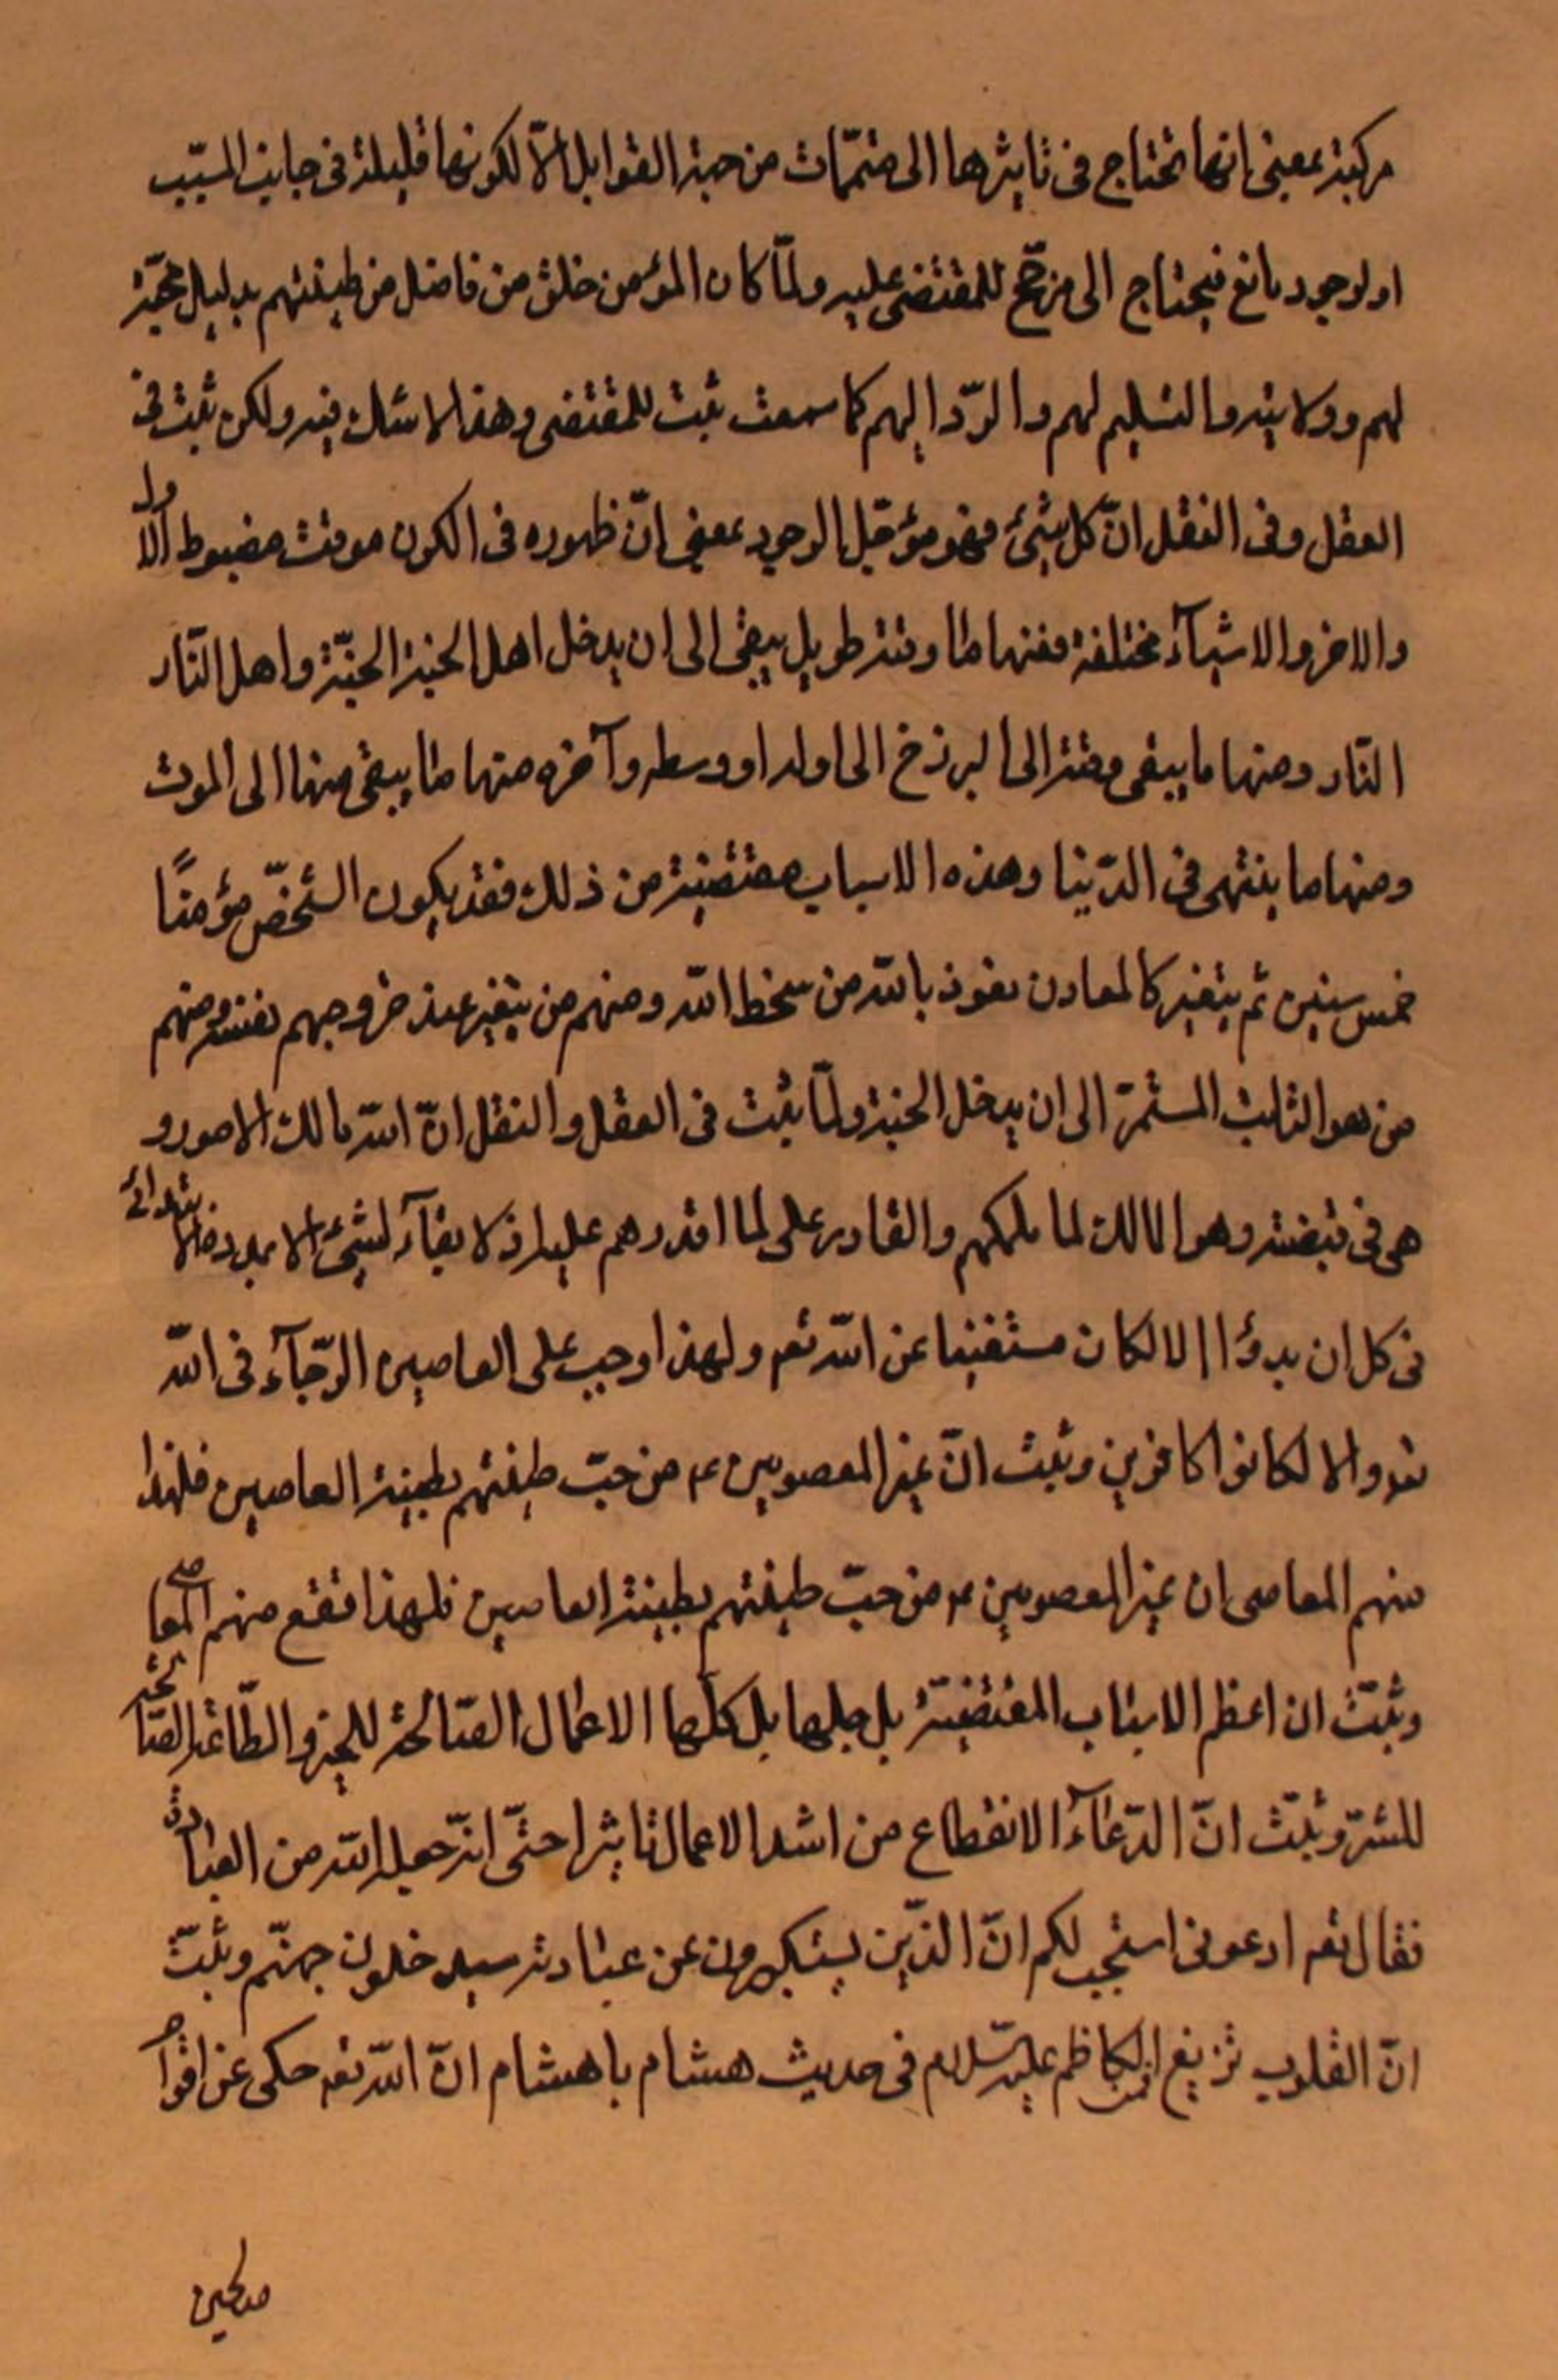 مركبة بمعنى انها تحتاج فى تاثيرها الى متممّات من جهة القوابل امّا لكونها قليلة فى جانب المسبّب
او لوجود مانع فيحتاج الى مرجّح للمقتضى عليه ولمّا كان المؤمن خلق من فاضل من طينتهم بدليل محبّته
لهم وولايته والتسليم لهم والردّ اليهم كما سمعت ثبت للمقتضى وهذا لا شك فيه ولكن ثبت فى
العقل وفى النقل انّ كل شئ فهو مؤجّل الوجود بمعنى انّ ظهوره فى الكون موقت مضبوط الاول
والاخر والاشيآء مختلفة فمنها ما وقته طويل يبقى الى ان يدخل اهل الجنة الجنّة واهل النّار
النّار ومنها ما يبقى وقته الى البرزخ الى اوله او وسطه وآخره منها ما يبقى منها الى الموت
ومنها ما ينتهى فى الدّنيا وهذه الاسباب مقتضية من ذلك فقد يكون الشخصّ مؤمنًا
خمس سنين ثم يتغير كالمعادن نعوذ بالله من سخط الله ومنهم من يتغير عند خروجهم نفسه ومنهم
من هو الثابت المستمرّ الى ان يدخل الجنة ولمّا ثبت فى العقل والنقل انّ الله مالك الامور و
هى فى قبضته وهو المالك لما ملكهم والقادر على لما اقدرهم عليه اذ لا بقآء لشئ الا بمدد
فى كل ان بدؤا الا لكان مستغنيا عن الله تعم ولهذا وجب على العاصين الرّجآء فى الله
تعم والا لكانوا كافرين وثبت انّ غير المعصومين ع من حبّ طينتهم بطينة العاصين فلهذا
منهم المعاصى ان غير المعصومين ع من حبّ طينتهم بطينة العاصين فلهذا تقع منهم المعاصى
وثبتّ ان اعظم الاسباب المقتضيّة بل جلها بل كلّها الاعمال الصّالحة للخير والطّاعة القبا
للشرّ وثبتّ انّ الدّعآء الانقطاع من اشد الاعمال تاثيرا حتّى انّه جعله الله من العبادة
فقال تعم ادعونى استجب لكم انّ الذّين يستكبرون عن عبادته سيدخلون جهنّم وثبتّ
انّ القلوب تزيغ الكاظم عليه السّلام فى حديث هشام يا هشام انّ الله تعم حكى عن اقوام
صالحين